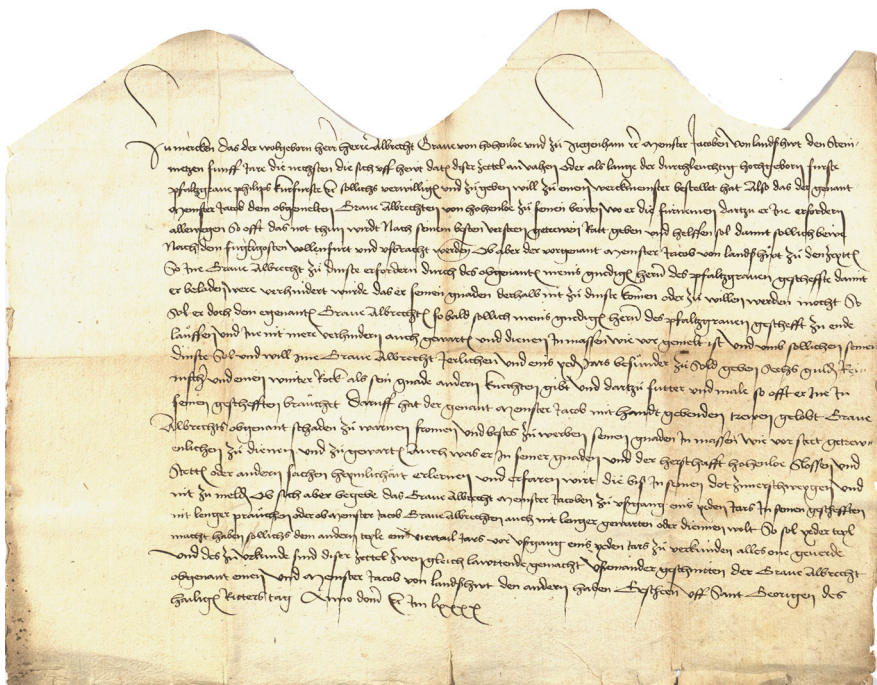 Zu mercken das der wolgeborn herr herre Albrecht Graue von hohenloe und zu Ziegenhain rc Meinster Jacoben von landsshůt den Stein
metzen funff Jare die nechsten die sich uff hewt dat diser zettel anvahen oder als lange der durchleuchtig hochgeborn furste
pfaltzgraue philips kurfurste rc sollichs verwilligt und zugeben will zu einen werckmeinster bestellet hat Also das der genant
Meinster Jacob dem obgemelten Graue Albrechten von hohenloe zu seinen bewen wo er die furnemen dartzu er Ine erfordern
allewegen So offt das not thun wirdt Nach seinem besten versteen getrewen Ratt geben und helffen sol damit sollich bewe
Nach dem fuglichsten vollenfurt und usbracht werden Ob aber der vorgenant Meinster Jacob von landsshůt zu den zeyten
So Ine Graue Albrecht zu dinste erfordern durch des obgenanten meins gnedigen hern des pfaltzgrauen gescheffte damit
er beladen were verhindert wurde das er seinen gnaden deshalb nit zu dinste komen oder zu wollen werden mocht So
Sol er doch dem egenanten Graue Albrechten so bald sollich meins gnedigen hern des pfaltzgrauen gescheft zu ende
lauffen und Ine nit mere verhindern auch gewarten und dienen Inmassen wie vor gemelt ist und umb sollichen seinen
dinste Sol und will Ime Graue Albrecht Jerlichen und eins yeden Jars besunder zu Sold geben Sechs guldin Rei
nisch und einen winter Rock als sein gnade andern knechten gibt und dartzu futter und male so offt er Ine In
seinen gescheften brauchet Daruff hat der genant Meinster Jacob mit handt gebenden trewen gelobt Graue
Albrechts obgenant schaden zu warnen fromen und bestes zu werben seinen gnaden In massen wie vor stet getrew
enlichen zu dienen und zu gewarten Auch was er In seiner gnaden und der herschafft hohenloe Slossen und
Stetten oder andern sachen heymlichait erlernen und erfaren wirt die biss In seinen dot zuuerschweygen und
nit zu melden Ob sich aber begebe das Graue Albrecht Meinster Jacoben zu ussgang eins yeden Jars In seinen gescheften
nit lenger prauchen oder ob Meinster Jacob Graue Albrechten auch nit lenger gewarten oder dienen wolt So sol yeder teyl
macht haben sollichs dem andern teyle ein viertail Jars vor ussgang eins yeden Jars zu verkunden alles one geuerde
Und des zu urkunde sind diser zettel zwen gleich lawtende gemacht ussenander geschnitten der Graue Albrecht
obgenant einen und Meinster Jacob von landsshůt den andern haben Gescheen uff Sant Georigen des
hailigen Ritters tag Anno domini rc Im lxxxx